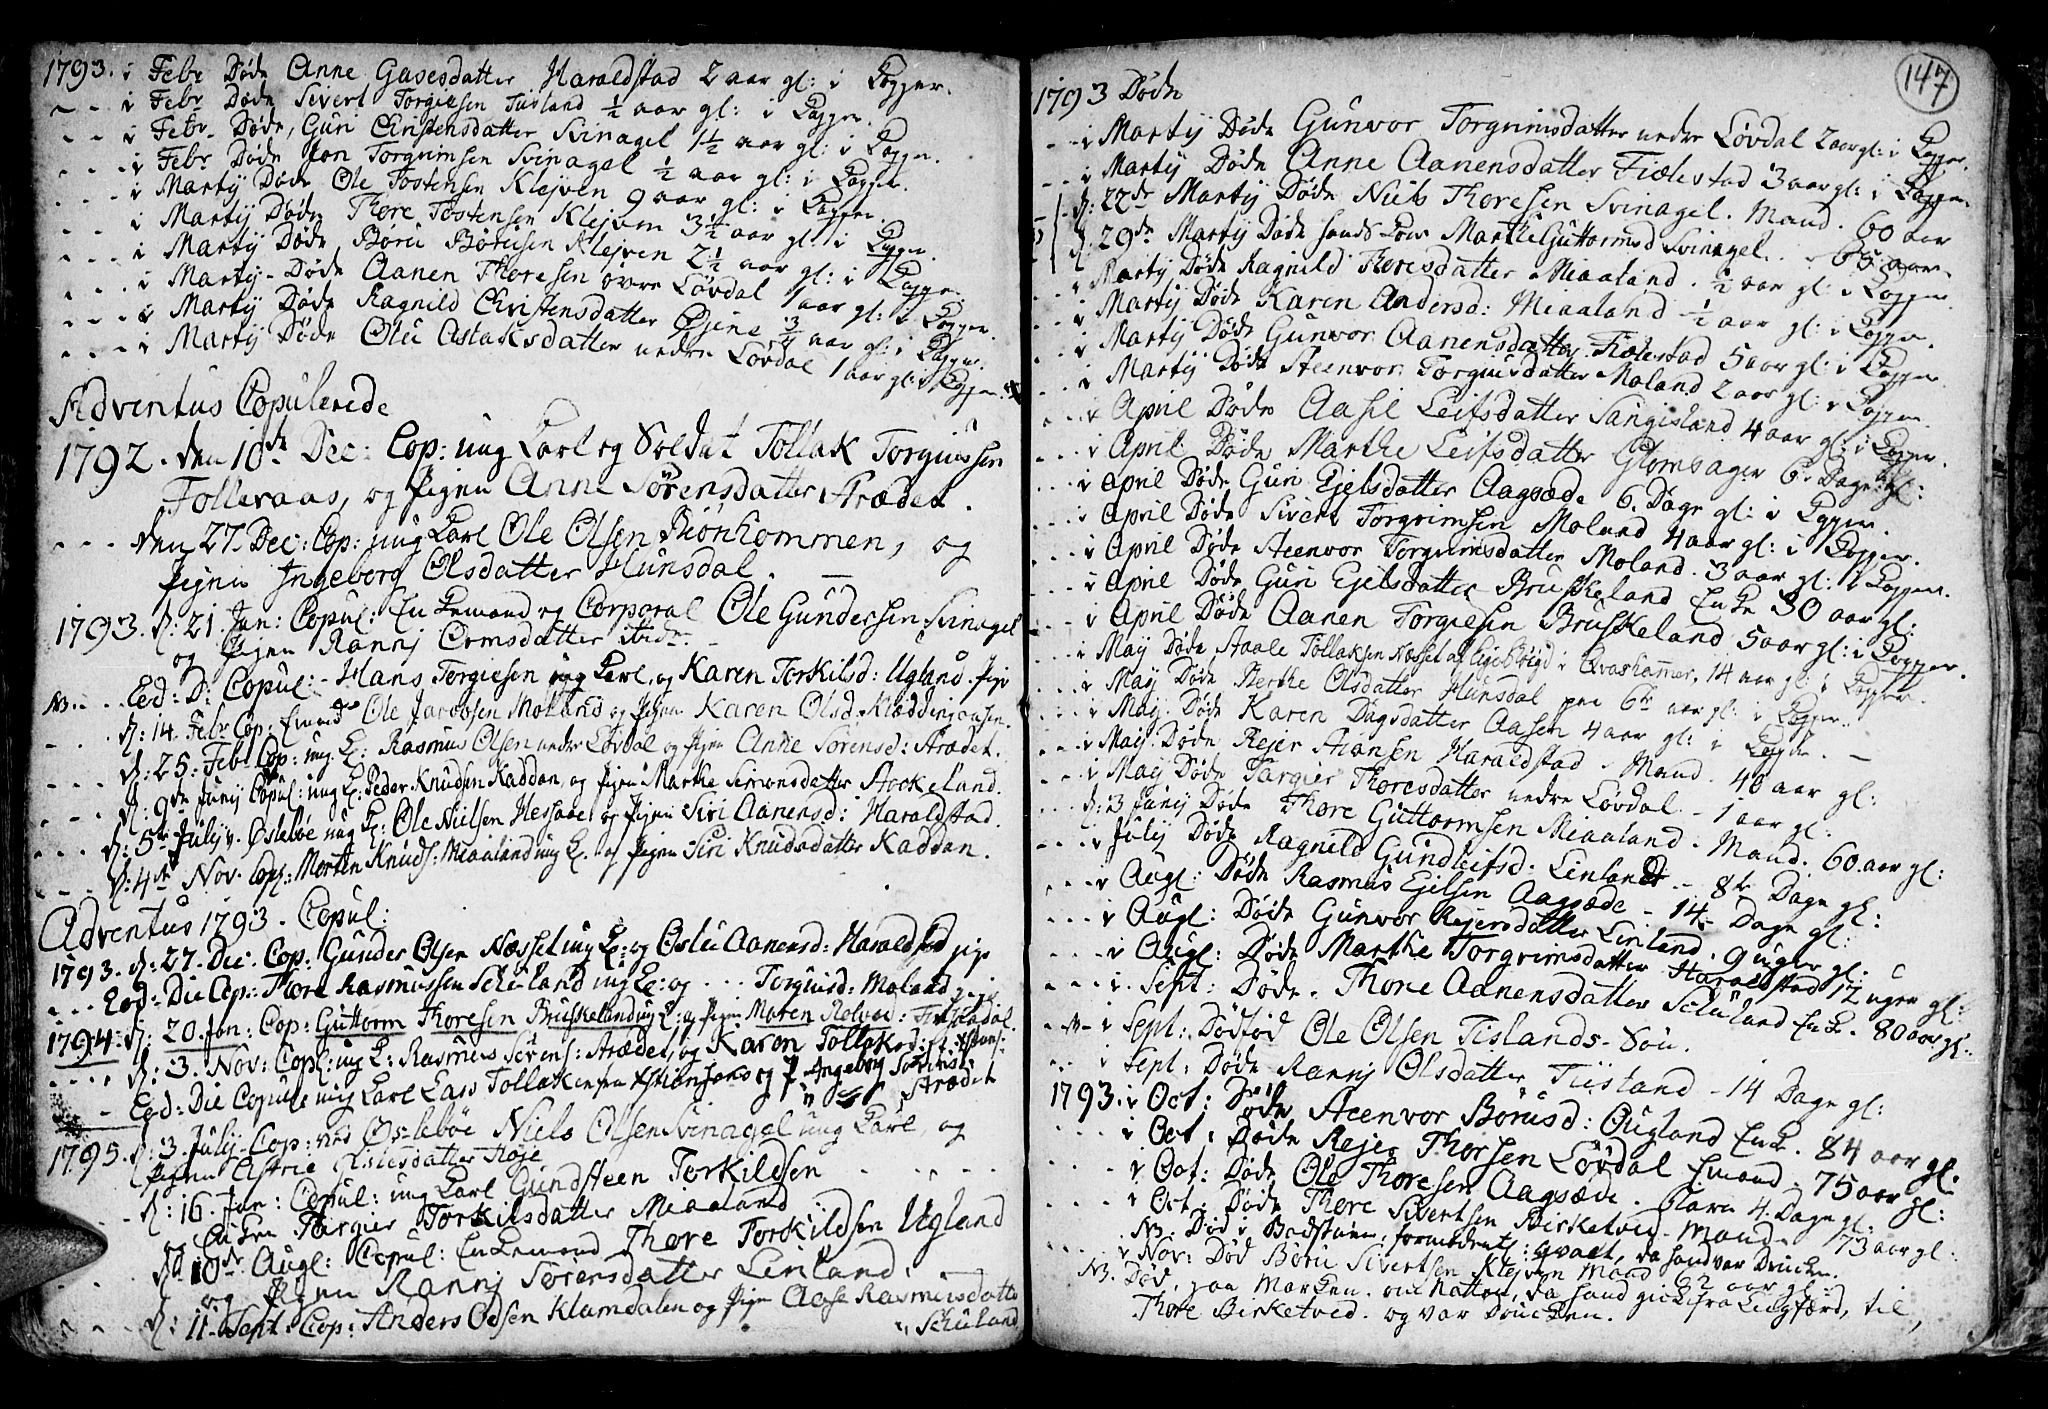 1793. i Febr Døde Anne Gasesdatter Haraldstad 2 aar gl: i Kopper.
- - - i Febr Døde Sivert Torgiesen Tiisland ½ aar gl: i Kopper.
- - - i Febr. Døde, Guri Christensdatter Svinagel 1½ aar gl: i Kopper.
- - - i Febr Døde Jon Torgrimsen Svinagel ½ aar gl: i Kopper.
- - - i Martij Døde Ole Tostensen Klejven 9 aar gl: i Kopper.
- - - i Martij Døde Thore Tostensen Klejven 3½ aar gl: i Kopper.
- - - i Martij Døde Børu Børusen Klejven 2½ aar gl: i Kopper.
- - - i Martij - Døde Aanen Thoresen øvre Løvdal 1 aar gl: i Kopper.
- - - i Martij Døde Ragnild Christensdatter Øjene ¾ aar gl: i Kopper.
- - - i Martij Døde Olu Aslaksdatter nedre Løvdal 1 aar gl: i Kopper.
Adventus Copulerede
1792. den 10de Dec: Cop: ung Karl og Soldat Tollak Torguusen
Folleraas, og Pigen Anne Sørensdatter Strædet.
- - - den 27. Dec: Cop: ung Karl Ole Olsen Biønkommen, og
Pigen Ingeborg Olsdatter Hunsdal. -
1793. d: 21. Jan: Copul: Enkemand og Corporal Ole Gundersen Svinagel
og Pigen Rannj Ormsdatter ibid.
Eod: D: Copul: - Hans Torgiesen ung Karl, og Karen Torkilsd: Ugland. Pige
N3. - d: 14. Febr Cop. Emand Ole Jacobsen Moland og Pigen Karen Olsd: Kleddingousen.
- - - d: 25. Feb. Cop: ung K: Rasmus Olsen nedre Løvdal og Pigen Anne Sørensd: Strædet.
- - - d: 9de Junij Copul: ung K: Peder Knudsen Kaddan, og Pigen Marthe Simonsdatter Stockeland.
- - - d: 5te Julij v. Øslebøe ung K: Ole Nielsen Hessaae og Pigen Siri Aanensd: Haraldstad.
- - - d: 4de Nov. Cop: Morten Knuds: Miaaland ung K. og Pigen Siri Knudsdatter Kaddan.
Adventus 1793. Copul:
1793. d: 27. Dec. Cop: Gunder Olsen Næsset ung K: og Oslu Aanensd: Haraldstad pige
- - - Eod: Die Cop: Thore Rasmussen Schuland ung K: og . . . Torguisd: Moland pige.
1794. d: 20. Jan: Cop: Guttorm Thoresen Bruskeland ung K: og Pigen Maren
- - - d: 3. Nov: Copl: ung K: Rasmus Sørens: Strædet, og Karen Tollaksd:
- Eod: Die Copule ung Karl Lars Tollaksen og P. Angeborg Strædet
1795. d: 3. Julij - Cop: ved Øslebøe Niels Olsen Svinagel ung Karl, og
Pigen Astrie Gislesdatter Røje
d: 16. Jun: Copul: ung Karl Gundsteen Torkildsen . . . .
og Enken Targier Torkilsdatter Miaaland
d 10de Augl: Copul: Enkemand Thore Torkildsen Ugland
og Pigen Rannj Sørensdatter Linland. -
- - - d: 11. Sept: Cop: Anders Odsen Klamdalen og Pigen Aase Rasmusdatter
Schuland
147
1793 Døde
- - i Martij Døde Gunvor Torgrimsdatter nedre Løvdal 2 aar gl: i Kopper.
- - i Martij Døde Anne Aanensdatter Fielestad 3 aar gl: i Kopper.
- d: 22de Martij Døde Niels Thoresen Svinagel. Mand. 60 aar
d: 29de Martij Døde hands Kone Marthe Guttormsd Svinagel. - 65 aar.
i Martij Døde Ragnild Thoresdatter Miaaland. ½ aar gl: i Kopper
i Martij Døde Karen Andersd: Miaaland ½ aar gl: i Kopper.
- i Martij Døde Gunvor Aanensdatter Fielestad 5 aar gl: i Kopper.
- - i Martij Døde Steenvor Torguisdatter Moland 2 aar gl: i Kopper.
- - i April Døde Aasil Leifsdatter Sangesland 4 aar gl: i Kopper.
- - i April Døde Marthe Leifsdatter Glomsager 6. Dage gl:
- - i April Døde Guri Ejelsdatter Aagsæde 6. Dage gl: i Kopper.
- - i April Døde Sivert Torgrimsen Moland 4 aar gl: i Kopper.
- - i April Døde Steenvor Torgrimsdatter Moland. 3 aar gl: i Kopper.
- - i April Døde Guri Ejelsdatter Bruskeland Enke 80 aar gl:
- - i April Døde Aanen Torgiesen Bruskeland 5 aar gl: i Kopper.
- - i Maij Døde Staale Tollaksen Næsset af Ejebøigd i Qvashammer, 14 aar gl: i Kopper.
- - i Maij Døde Berthe Olsdatter Hunsdal paa 6te aar gl: i Kopper.
- - i Maij. Døde Karen Dagsdatter Aasen 4 aar gl: i Kopper. -
- - i Maij. Døde Rejer Stiansen Haraldstad - Mand. 40 aar gl:
- - i Maij Døde Targier Thoresdatter nedre Løvdal. - 1 aar gl:
- - d: 3 Junij Døde Thore Guttormsen Miaaland. Mand. 60. aar gl:
- - i Julij Døde Ragnild Gundleifsd: Linland - 8te Dage gl:
- - i Augl: Døde Rasmus Ejelsen Aagsæde - 14. Dage gl:
- - i Augl: Døde Gunvor Rejersdatter Linland. 9 uger gl:
- - i Augl: Døde Marthe Torgrimsdatter Haraldstad 12 uger gl:
- - i Sept: Døde. Thore Aanensdatter Schuland Enke. 80 aar gl:
- N - i Sept: Dødfød Ole Olsen Tislands - Søn.
- - i Sept: Døde Rannj Olsdatter Tiisland - 14 Dage gl:
1793. i Oct: Døde Steenvor Børusd: Ougland Enke. 84 aar gl:
- - i Oct: Døde Rejer Thorsen Løvdal Emand. 75 aar gl:
- - i Oct: Døde Ole Thoresen Aagsæde. Barn 4. Dage gl:
- - i Oct: Døde Thore Sivertsen Birketved. Mand - 73 aar gl:
N3. Død i Badstuen, formedentl: qvalt, da hand var Drucken.
- i Nov: Død Børu Sivertsen Klejven Mand 62 aar gl:
N3. Død, paa Marken. om Natten, da hand gick fra Liigfærd, til,
Thore Birketved. og var Drucken.